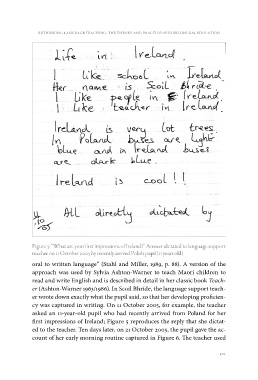 RETHINKING LANGUAGE TEACHING: THE THEORY AND PRACTICE OF PLURILINGUAL EDUCATION
Life in Ireland.
I like school in Ireland.
Her name is Scoil Bhríde.
I like people in Ireland
I like teacher in Ireland.
Ireland is very lot trees.
In Poland buses are light
blue and in Ireland buses
are dark blue.
Ireland is cool!!
11/10/05 All directly dictated by
Figure 5: "What are your first impressions of Ireland?" Answer dictated to language support
teacher on 11 October 2005 by recently arrived Polish pupil (11 years old)
oral to written language" (Stahl and Miller, 1989, p. 88). A version of the
approach was used by Sylvia Ashton-Warner to teach Maori children to
read and write English and is described in detail in her classic book Teach-
er (Ashton-Warner 1963/1986). In Scoil Bhríde, the language support teach-
er wrote down exactly what the pupil said, so that her developing proficien-
cy was captured in writing. On 11 October 2005, for example, the teacher
asked an 11-year-old pupil who had recently arrived from Poland for her
first impressions of Ireland; Figure 5 reproduces the reply that she dictat-
ed to the teacher. Ten days later, on 21 October 2005, the pupil gave the ac-
count of her early morning routine captured in Figure 6. The teacher used